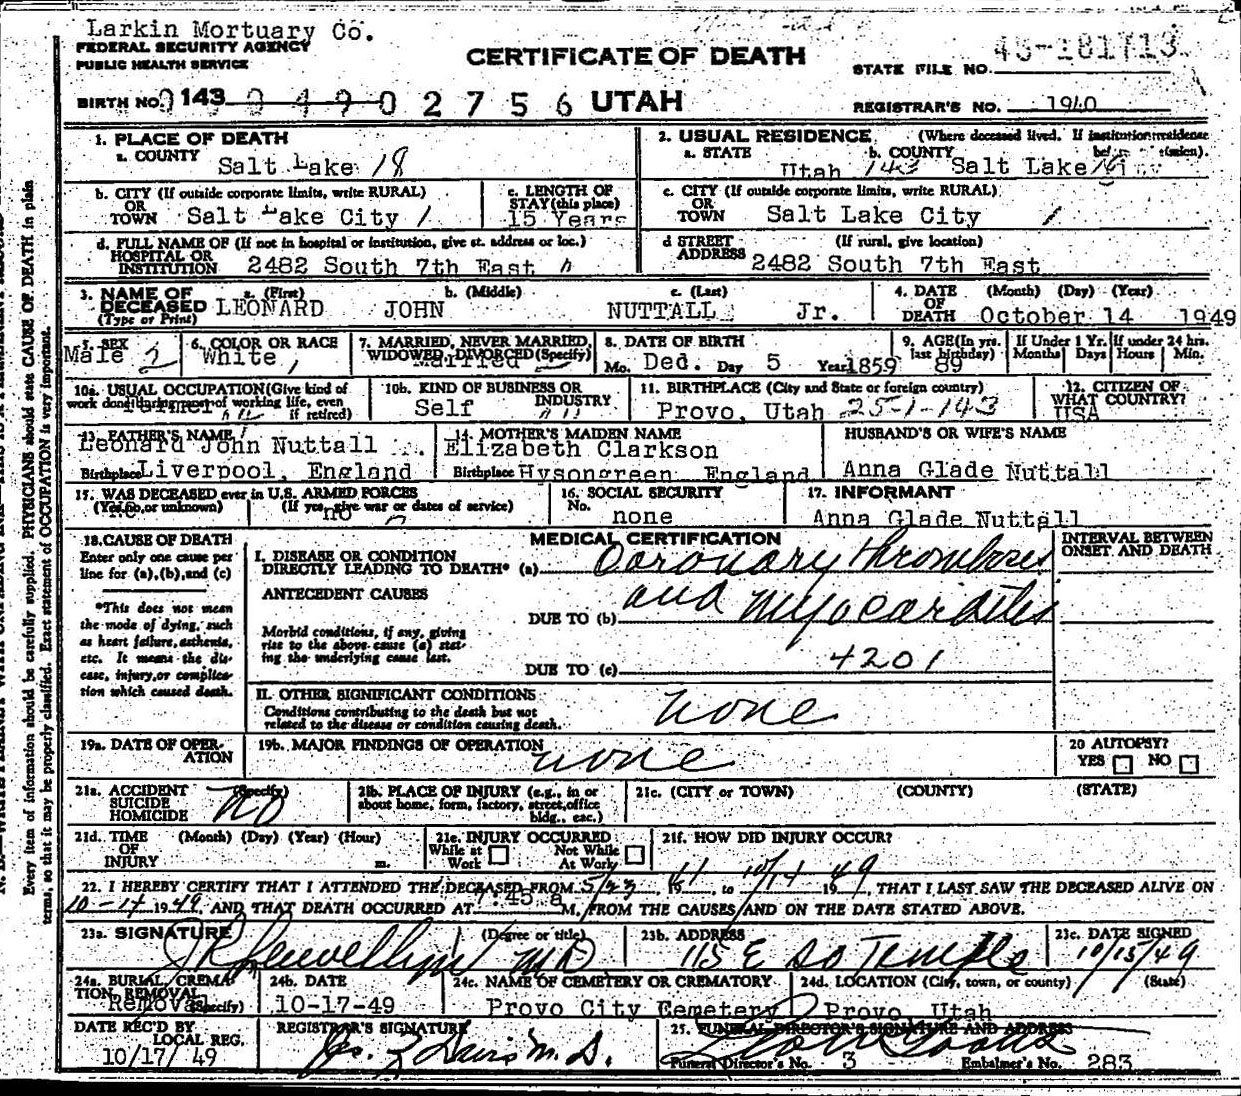 Larkin Mortuary Co.
FEDERAL SECURITY AGENCY
PUBLIC HEALTH SERVICE
CERTIFICATE OF DEATH
STATE FILE NO. 49-181713
BIRTH NO. 143 0 4 9 0 2 7 5 6 UTAH
REGISTRAR'S NO. 1940
1. PLACE OF DEATH
a. COUNTY Salt Lake 18
2. USUAL RESIDENCE (Where deceased lived. If institution: residence before admission).
a. STATE Utah 143 b. COUNTY Salt Lake
b. CITY (If outside corporate limits, write RURAL) OR TOWN Salt Lake City 1
c. LENGTH OF STAY (this place) 15 Years
c. CITY (If outside corporate limits, write RURAL) OR TOWN Salt Lake City 1
d. FULL NAME OF (If not in hospital or institution, give st. address or loc.) HOSPITAL OR INSTITUTION 2482 South 7th East
d STREET ADDRESS (If rural, give location) 2482 South 7th East
3. NAME OF DECEASED (Type or Print) a. (First) LEONARD b. (Middle) JOHN c. (Last) NUTTALL Jr.
4. DATE OF DEATH (Month) (Day) (Year) October 14 1949
5. SEX Male 2
6. COLOR OR RACE White 1
7. MARRIED, NEVER MARRIED, WIDOWED, DIVORCED (Specify) Married
8. DATE OF BIRTH Mo. Ded. Day 5 Year 1859
9. AGE (In yrs. last birthday) 89 If Under 1 Yr. Months Days If under 24 hrs. Hours Min.
10a. USUAL OCCUPATION (Give kind of work done during most of working life, even if retired) Farmer
10b. KIND OF BUSINESS OR INDUSTRY Self
11. BIRTHPLACE (City and State or foreign country) Provo, Utah 25-1-143
12. CITIZEN OF WHAT COUNTRY? USA
13. FATHER'S NAME Leonard John Nuttall
Birthplace Liverpool, England
14. MOTHER'S MAIDEN NAME Elizabeth Clarkson
Birthplace Hysongreen England
HUSBAND'S OR WIFE'S NAME
Anna Glade Nuttall
15. WAS DECEASED ever in U.S. ARMED FORCES (Yes, no, or unknown) No (If yes, give war or dates of service) no
16. SOCIAL SECURITY No. none
17. INFORMANT Anna Glade Nuttall
18. CAUSE OF DEATH
Enter only one cause per line for (a), (b), and (c)
*This does not mean the mode of dying, such as heart failure, asthenia, etc. It means the disease, injury, or complication which caused death.
MEDICAL CERTIFICATION
INTERVAL BETWEEN ONSET AND DEATH
I. DISEASE OR CONDITION DIRECTLY LEADING TO DEATH* (a) Coronary thrombosis
ANTECEDENT CAUSES
DUE TO (b) and myocarditis
Morbid conditions, if any, giving rise to the above cause (a) stating the underlying cause last.
DUE TO (c) 4201
II. OTHER SIGNIFICANT CONDITIONS
Conditions contributing to the death but not related to the disease or condition causing death. none
19a. DATE OF OPERATION
19b. MAJOR FINDINGS OF OPERATION none
20 AUTOPSY? YES NO
21a. ACCIDENT SUICIDE HOMICIDE (Specify) NO
21b. PLACE OF INJURY (e.g., in or about home, form, factory, street, office bldg., etc.)
21c. (CITY or TOWN) (COUNTY) (STATE)
21d. TIME OF INJURY (Month) (Day) (Year) (Hour) m.
21e. INJURY OCCURRED While at Work Not While At Work
21f. HOW DID INJURY OCCUR?
22. I HEREBY CERTIFY THAT I ATTENDED THE DECEASED FROM 5/23, 1941 to 10/14 1949, THAT I LAST SAW THE DECEASED ALIVE ON
10-14 1949, AND THAT DEATH OCCURRED AT 7:45 a M. FROM THE CAUSES AND ON THE DATE STATED ABOVE.
23a. SIGNATURE (Degree or title) Llewellyn MD
23b. ADDRESS 115 E So Temple
23c. DATE SIGNED 10/15/49
24a. BURIAL, CREMATION, REMOVAL (Specify) Removal
24b. DATE 10-17-49
24c. NAME OF CEMETERY OR CREMATORY Provo City Cemetery
24d. LOCATION (City, town, or county) (State) Provo, Utah
DATE REC'D BY LOCAL REG. 10/17/49
REGISTRAR'S SIGNATURE Davis M.D.
25. FUNERAL DIRECTOR'S SIGNATURE AND ADDRESS
Funeral Director's No. 3 Embalmer's No. 283
Every item of information should be carefully supplied. PHYSICIANS should state CAUSE OF DEATH in plain
terms, so that it may be properly classified. Exact statement of OCCUPATION is very important.